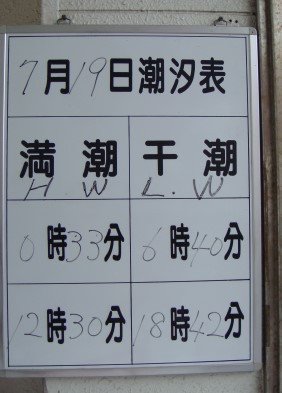 7月19日潮汐表
満潮 干潮
H.W L.W
0時33分 6時40分
12時30分 18時42分